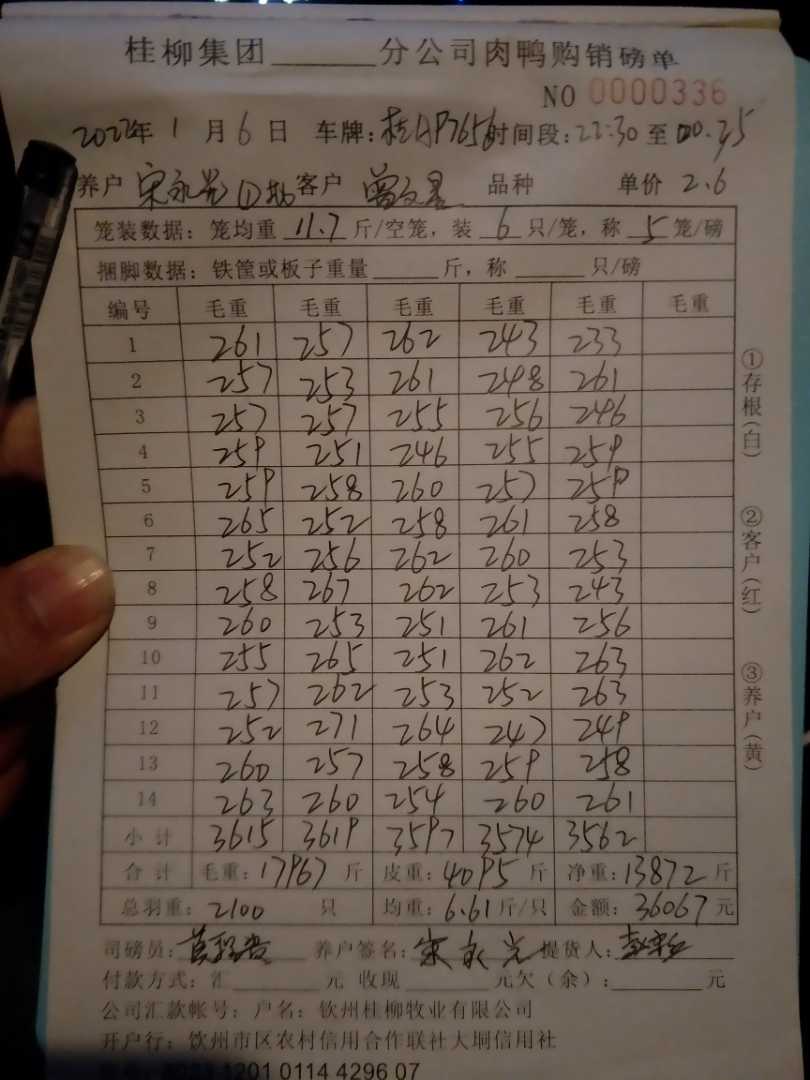 桂柳集团______分公司肉鸭购销磅单
NO 0000336
2022年 1 月 6 日 车牌:桂AP7656 时间段:22:30 至 00.45
养户 宋永光 ① 客户 品种 单价 2.6
笼装数据: 笼均重 11.7 斤/空笼, 装 6 只/笼, 称 5 笼/磅
捆脚数据: 铁筐或板子重量______斤, 称______只/磅
编号 毛重 毛重 毛重 毛重 毛重 毛重
1 261 257 262 243 233
2 257 253 261 248 261
3 257 257 255 256 246
4 259 251 246 255 259
5 259 258 260 257 259
6 265 252 258 261 258
7 252 256 262 260 253
8 258 267 262 253 243
9 260 253 251 261 256
10 255 265 251 262 263
11 257 262 253 252 263
12 252 271 264 247 249
13 260 257 258 259 258
14 263 260 254 260 261
小计 3615 3619 3597 3574 3562
合计 毛重: 17967 斤 皮重: 4095 斤 净重: 13872 斤
总羽重: 2100 只 均重: 6.61 斤/只 金额: 36067 元
司磅员: 养户签名: 宋永光 提货人:
付款方式: 汇______元 收现______元欠(余):______元
公司汇款帐号: 户名: 钦州桂柳牧业有限公司
开户行: 钦州市区农村信用合作联社大垌信用社
1201 0114 4296 07
①存根(白)
②客户(红)
③养户(黄)